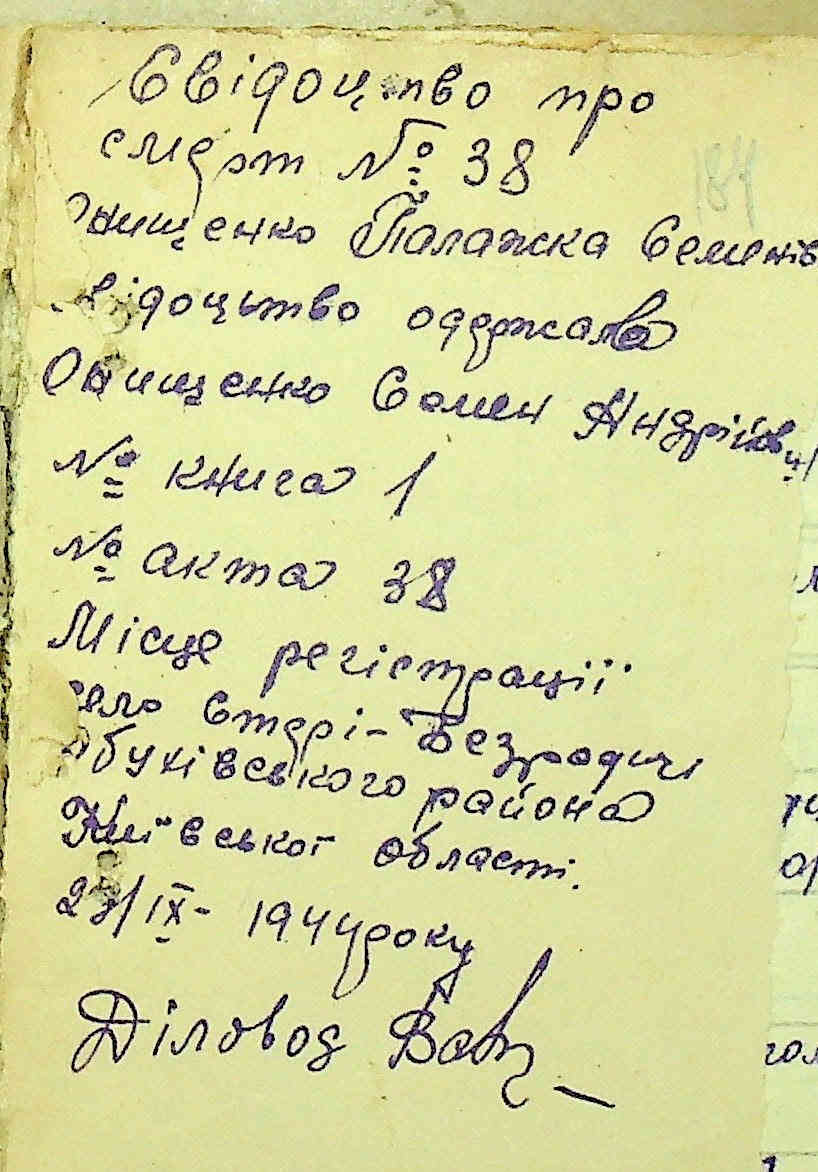 Свідоцтво про
смерт № 38
184
нищенко Палажка Семенів
відоцьтво одержала
Онищенко Семен Андрійович
№ книга 1
№ акта 38
Місце регістрації
село Старі-Безродичі
Обухівського района
Київської області.
/IX- 1944 року
Діловод